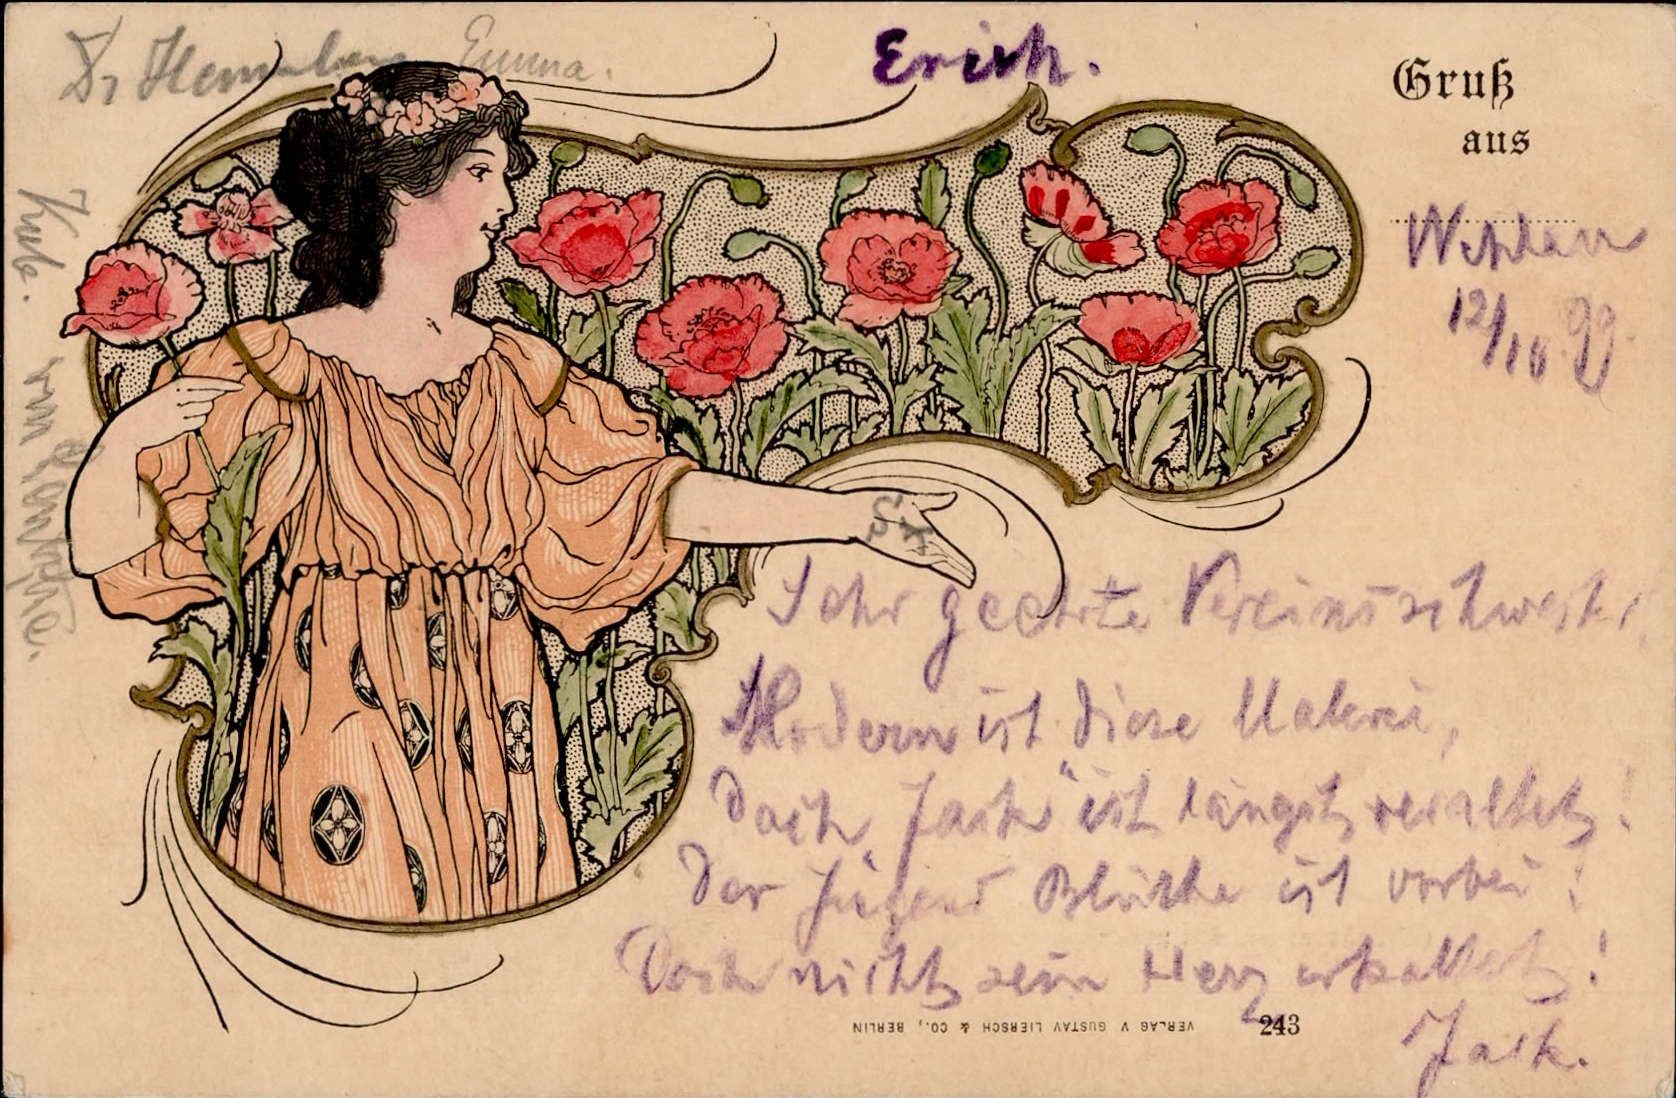 Dr Emma.
Erich.
Gruß
aus
12/10.99.
Sehr geehrte Vereinsschwester
Modern ist diese Malerei,
Doch „Jack" ist längst veraltet!
Der Jugend Blüthe ist vorbei!
Doch nicht sein Herz erkaltet!
Jack.
VERLAG V GUSTAV LIERSCH & CO., BERLIN
243